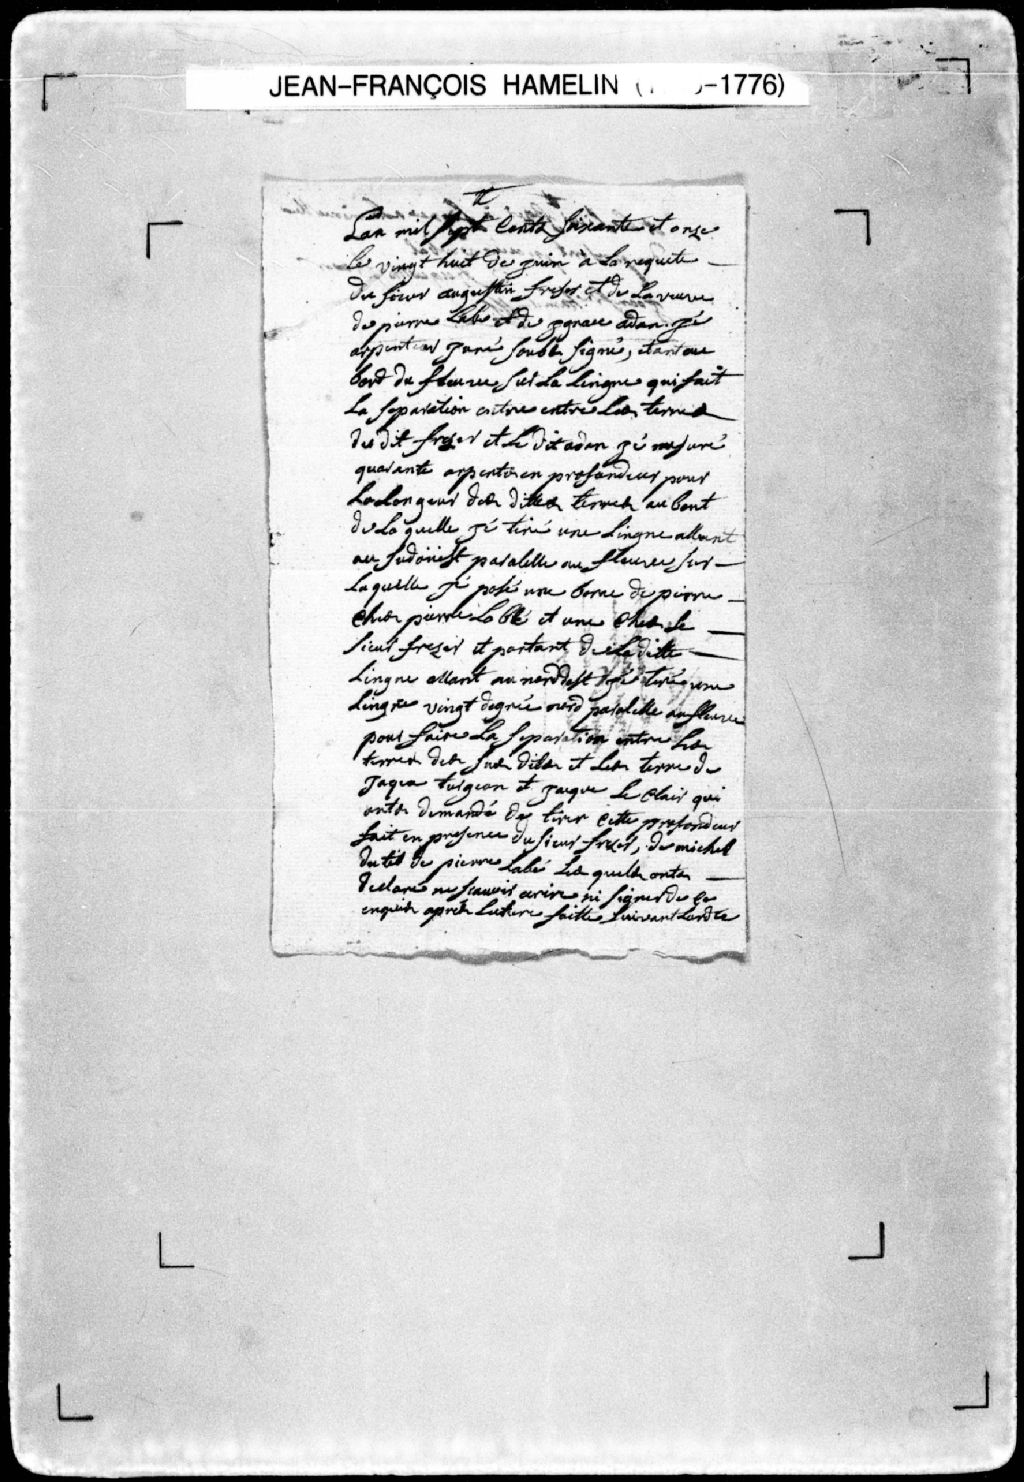 JEAN-FRANÇOIS HAMELIN ( -1776)
Lan mil sept Cents soixante et onze
le vingt huit de juin a la requete
du sieur augustin frezer et de la veuve
de pierre Labe et de ignace adan je
arpenteur juré soubs signé, etant au
bord du fleuve sur la lingne qui fait
la separation entre entre les terres
du dit frezer et le dit adan jé mesuré
quarante arpents en profondeur pour
la longeur des dittes terres au bout
de la quelle jé tiré une lingne allant
au sudouest paralelle au fleuve sur
laquelle jé posé une borne de pierre
ches pierre Labé et une ches le
sieur frezer et partant de la ditte
lingne allant au norddest jé tiré une
lingne vingt degrée nord paralelle au fleuve
pour faire la separation entre les
terres des sus dits et les terre de
jaque turgeon et jaque le Clair qui
onts demandé de tirer cette profondeur
fait en presence du sieur frezer, de michel
de pierre Labé les quells onts
declare ne scavoir ecrire ni signer de ce
enquis aprés lecture faitte suivant lordre